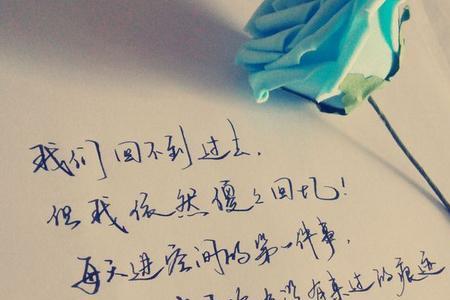 我们回不到过去.
但我依然傻之回忆!
每天进空间的第一件事,
没有来过的痕迹